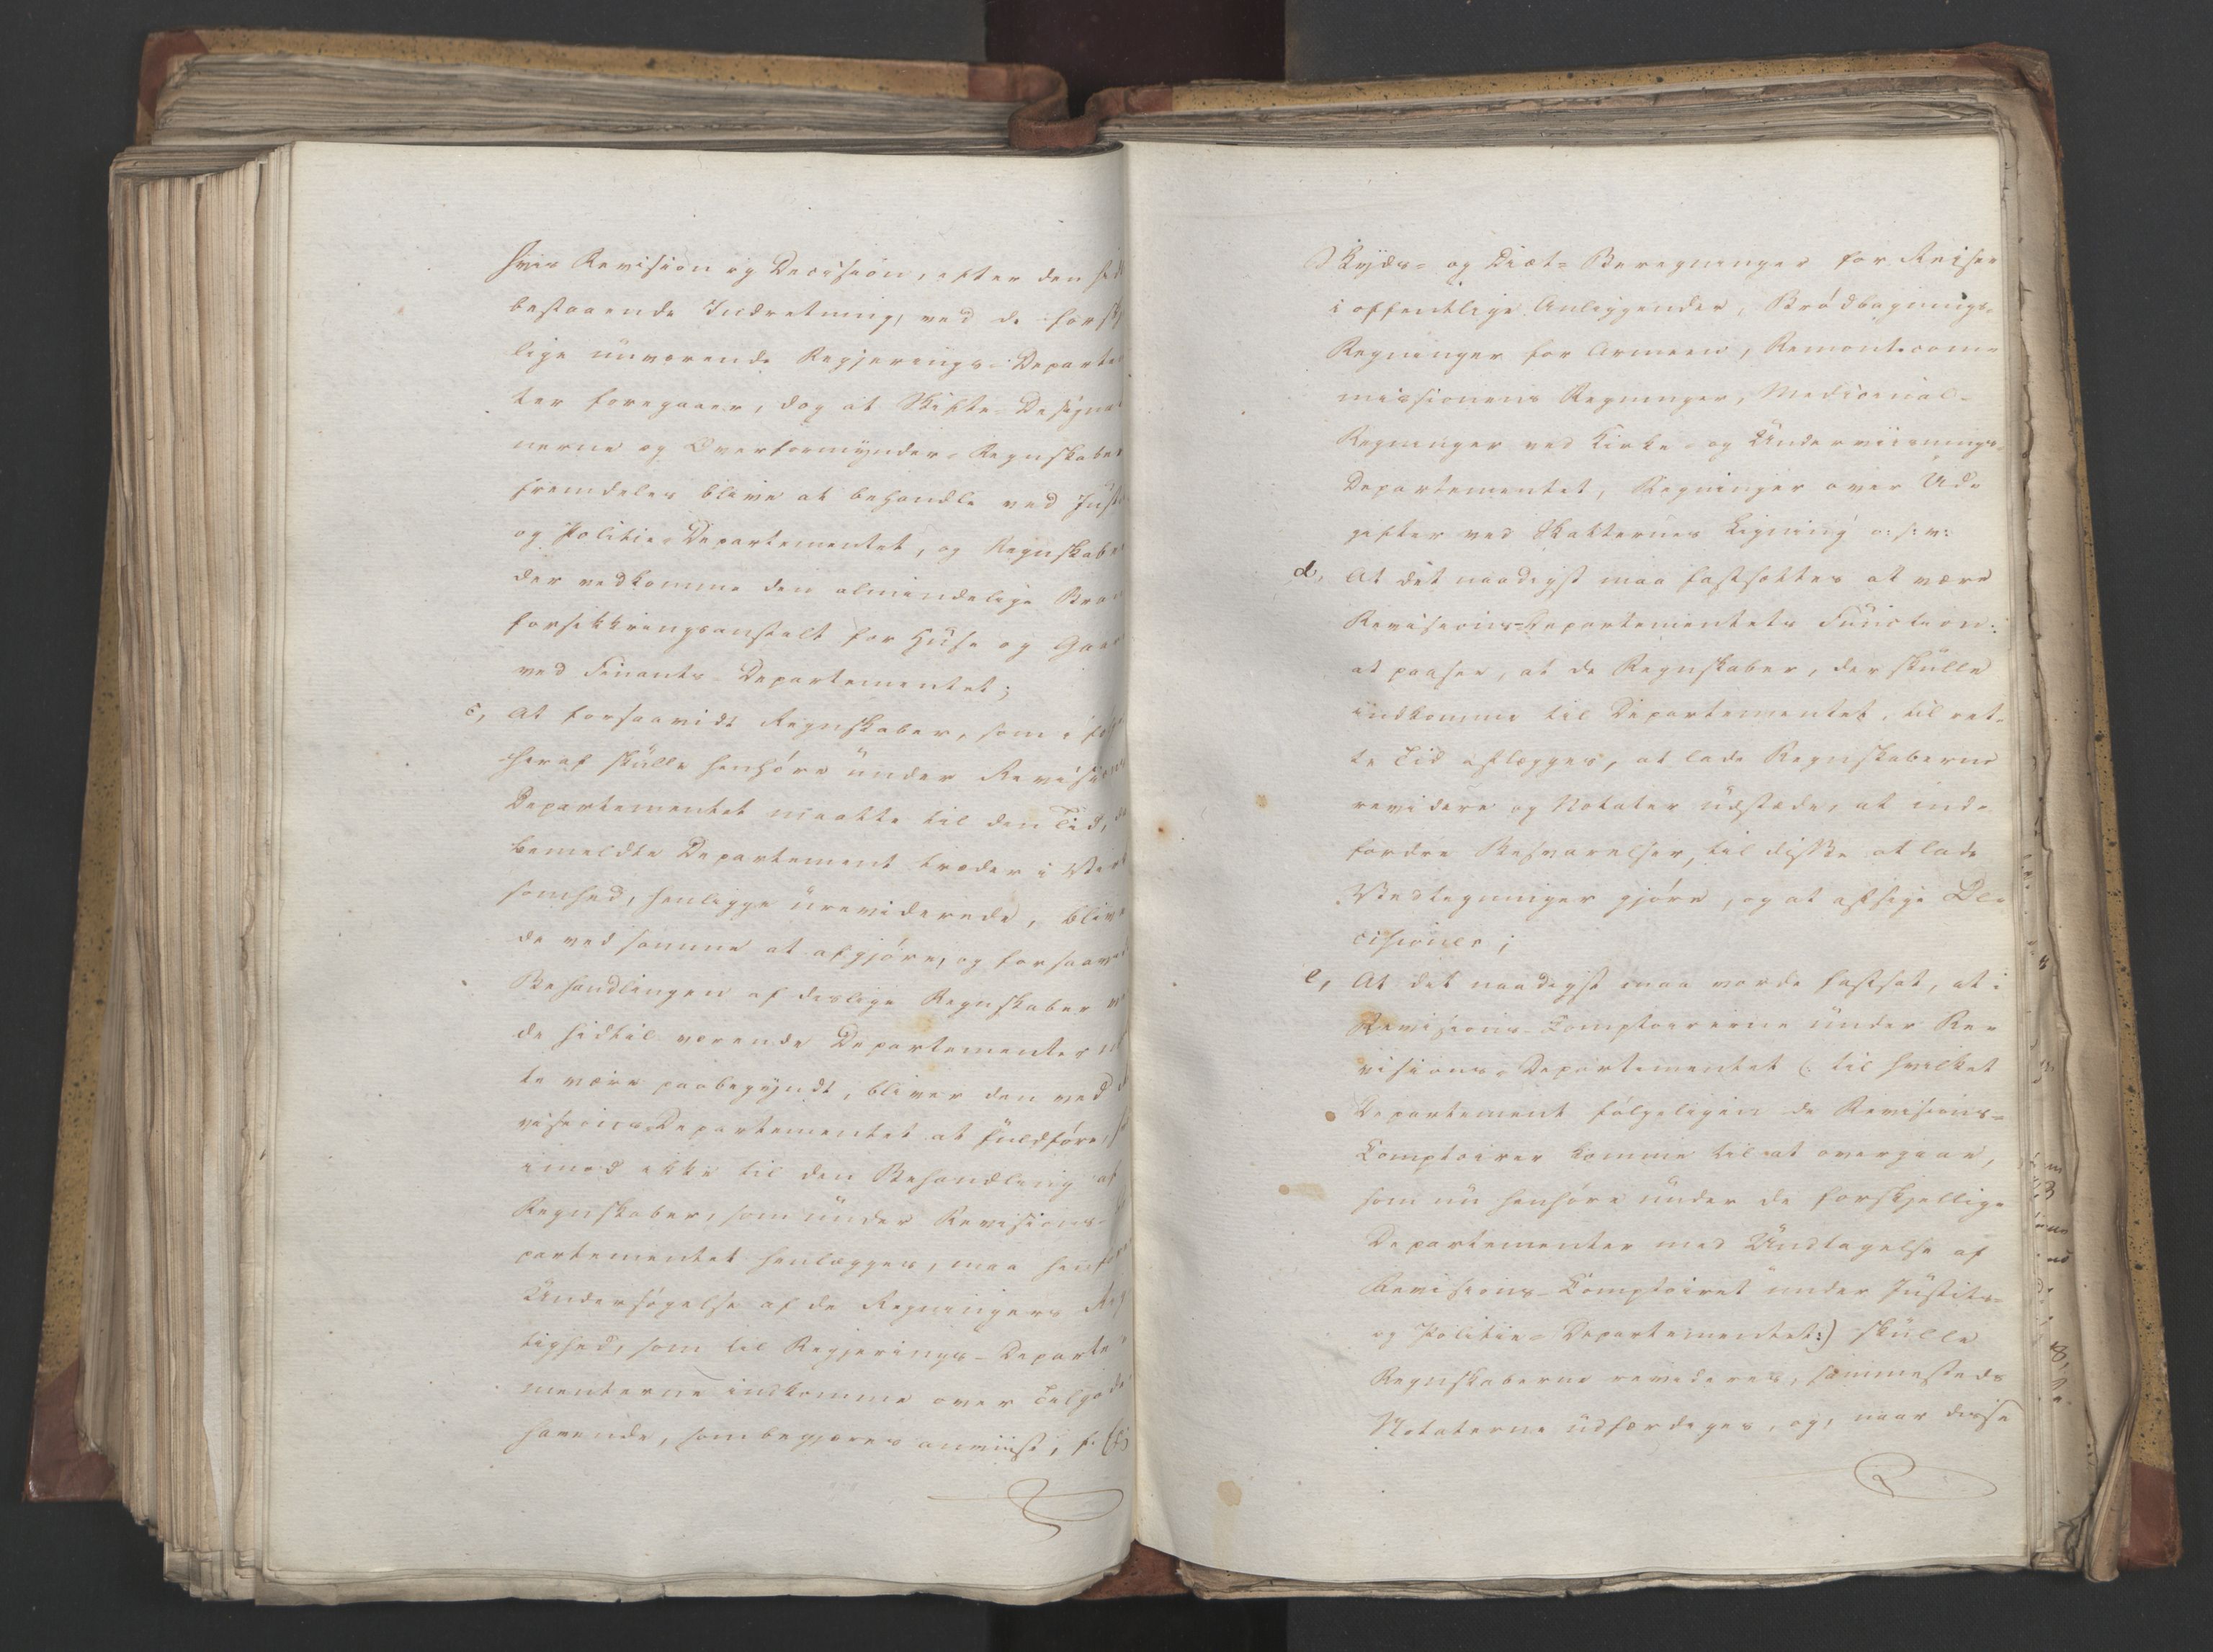 hvis Revision og Decision, efter den
bestaaende Indretning, ved de forskj
lige nuværende Regjerings-Departe
ter foregaaer, dog at Skifte-Designa
nerne og Overformynder-Regnskaber
fremdeles blive at behandle ved Just
og Politie-Departementet, og Regnskaber
der vedkomme den almindelige Bran
forsikkringsanstalt for Huse og Gaar
ved Finants-Departementet;
c, At forsaavidt Regnskaber, som i føl
heraf skulle henhøre under Revisions
Departementet maatte til den Tid, da
bemeldte Departement træder i Virk
somhed, henligge ureviderede, blive
de ved samme at afgjøre, og forsaavi
Behandlingen af deslige Regnskaber ve
de hidtil værende Departementer
te være paabegyndt, bliver den ved
visions-Departementet at fuldføre,
imod ikke til den Behandling af
Regnskaber, som under Revisions-
partementet henlægges, maa henføre
Undersøgelse af de Regningers Rig
tighed, som til Regjerings-Departe
menterne indkomme over Tilgode
havende, som begjæres anviist, f. Ex
Skyds- og Diæt-Beregninger for Reiser
i offentlige Anliggender, Brødbagnings-
Regninger for Armeen, Remontecom-
missionens Regninger, Medicinal-
Regninger ved Kirke- og Underviisnings-
Departementet, Regninger over Ud-
gifter ved Skatternes Ligning o: s: v:
d, At det naadigst maa fastsættes at være
Revisions-Departementets Function:
at paasee, at de Regnskaber, der skulle
indkomme til Departementet, til ret-
te Tid aflægges, at lade Regnskaberne
revidere og Notater udstæde, at ind-
fordre Besvarelser, til disse at lade
Vedtegninger gjøre, og at afsige De-
cisioner;
e, At det naadigst maa vorde fastsat, at i
Revisions-Comptoirerne under Re-
visions-Departementet (: til hvilket
Departement følgeligen de Revisions-
Comptoirer komme til at overgaae,
som nu henhøre under de forskjellige
Departementer med Undtagelse af
Revisions-Comptoiret under Justits-
og Politie-Departementet:) skulle
Regnskaberne revideres, sammesteds
Notaterne udfærdiges, og, naar disse